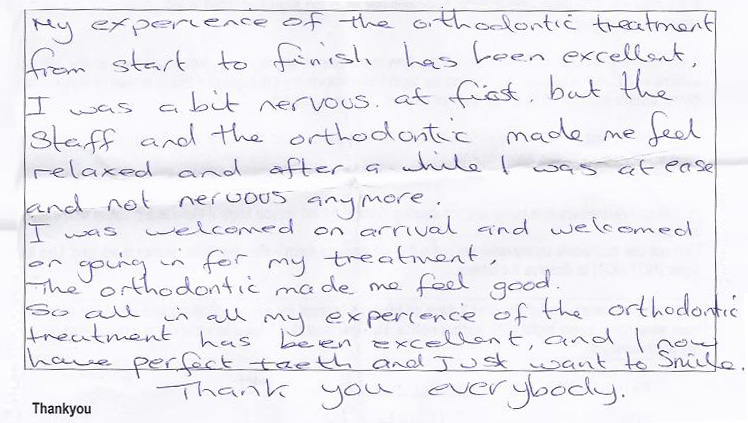 My experience of the orthodontic treatment
from start to finish has been excellent,
I was a bit nervous at first, but the
Staff and the orthodontic made me feel
relaxed and after a while I was at ease
and not nervous anymore.
I was welcomed on arrival and welcomed
on going in for my treatment.
The orthodontic made me feel good.
So all in all my experience of the orthodontic
treatment has been excellent, and I now
have perfect teeth and Just want to Smile.
Thank you everybody.
Thankyou